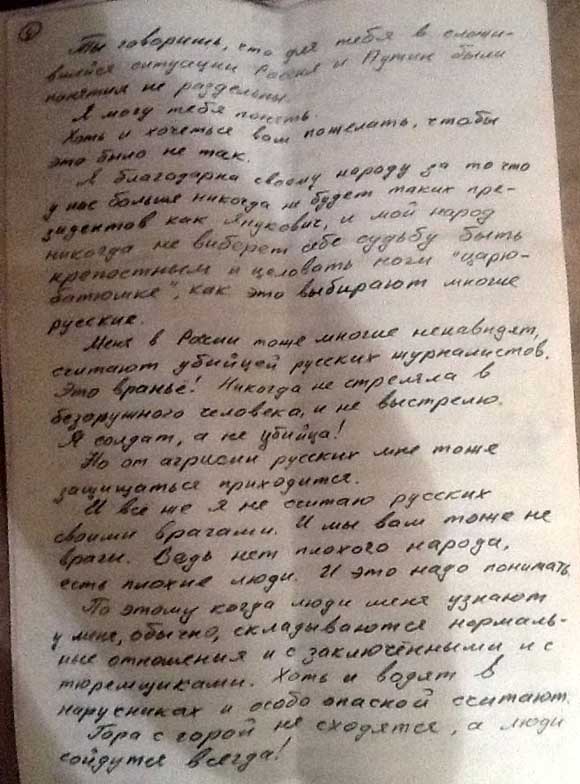 5
Ты говоришь, что для тебя в сложи-
вшийся ситуации Россия и Путин были
понятия не раздельны.
Я могу тебя понять.
Хоть и хочеться вам пожелать, чтобы
это было не так.
Я благодарна своему народу за то что
у нас больше никогда не будет таких пре-
зидентов как Янукович, и мой народ
никогда не виберет себе судьбу быть
крепостным и целовать ноги "царю-
батюшке", как это выбирают многие
русские.
Меня в России тоже многие ненавидят,
считают убийцей русских журналистов.
Это враньё! Никогда не стреляла в
безоружного человека, и не выстрелю.
Я солдат, а не убийца!
Но от агрисии русских мне тоже
защищаться приходится.
И все же я не считаю русских
своими врагами. И мы вам тоже не
враги. Ведь нет плохого народа,
есть плохие люди. И это надо понимать.
По этому когда люди меня узнают
у меня, обычно, складываются нормаль-
ные отношения и с заключёнными и с
тюремщиками. Хоть и водят в
наручниках и особо опасной считают.
Гора с горой не сходятся, а люди
сойдутся всегда!